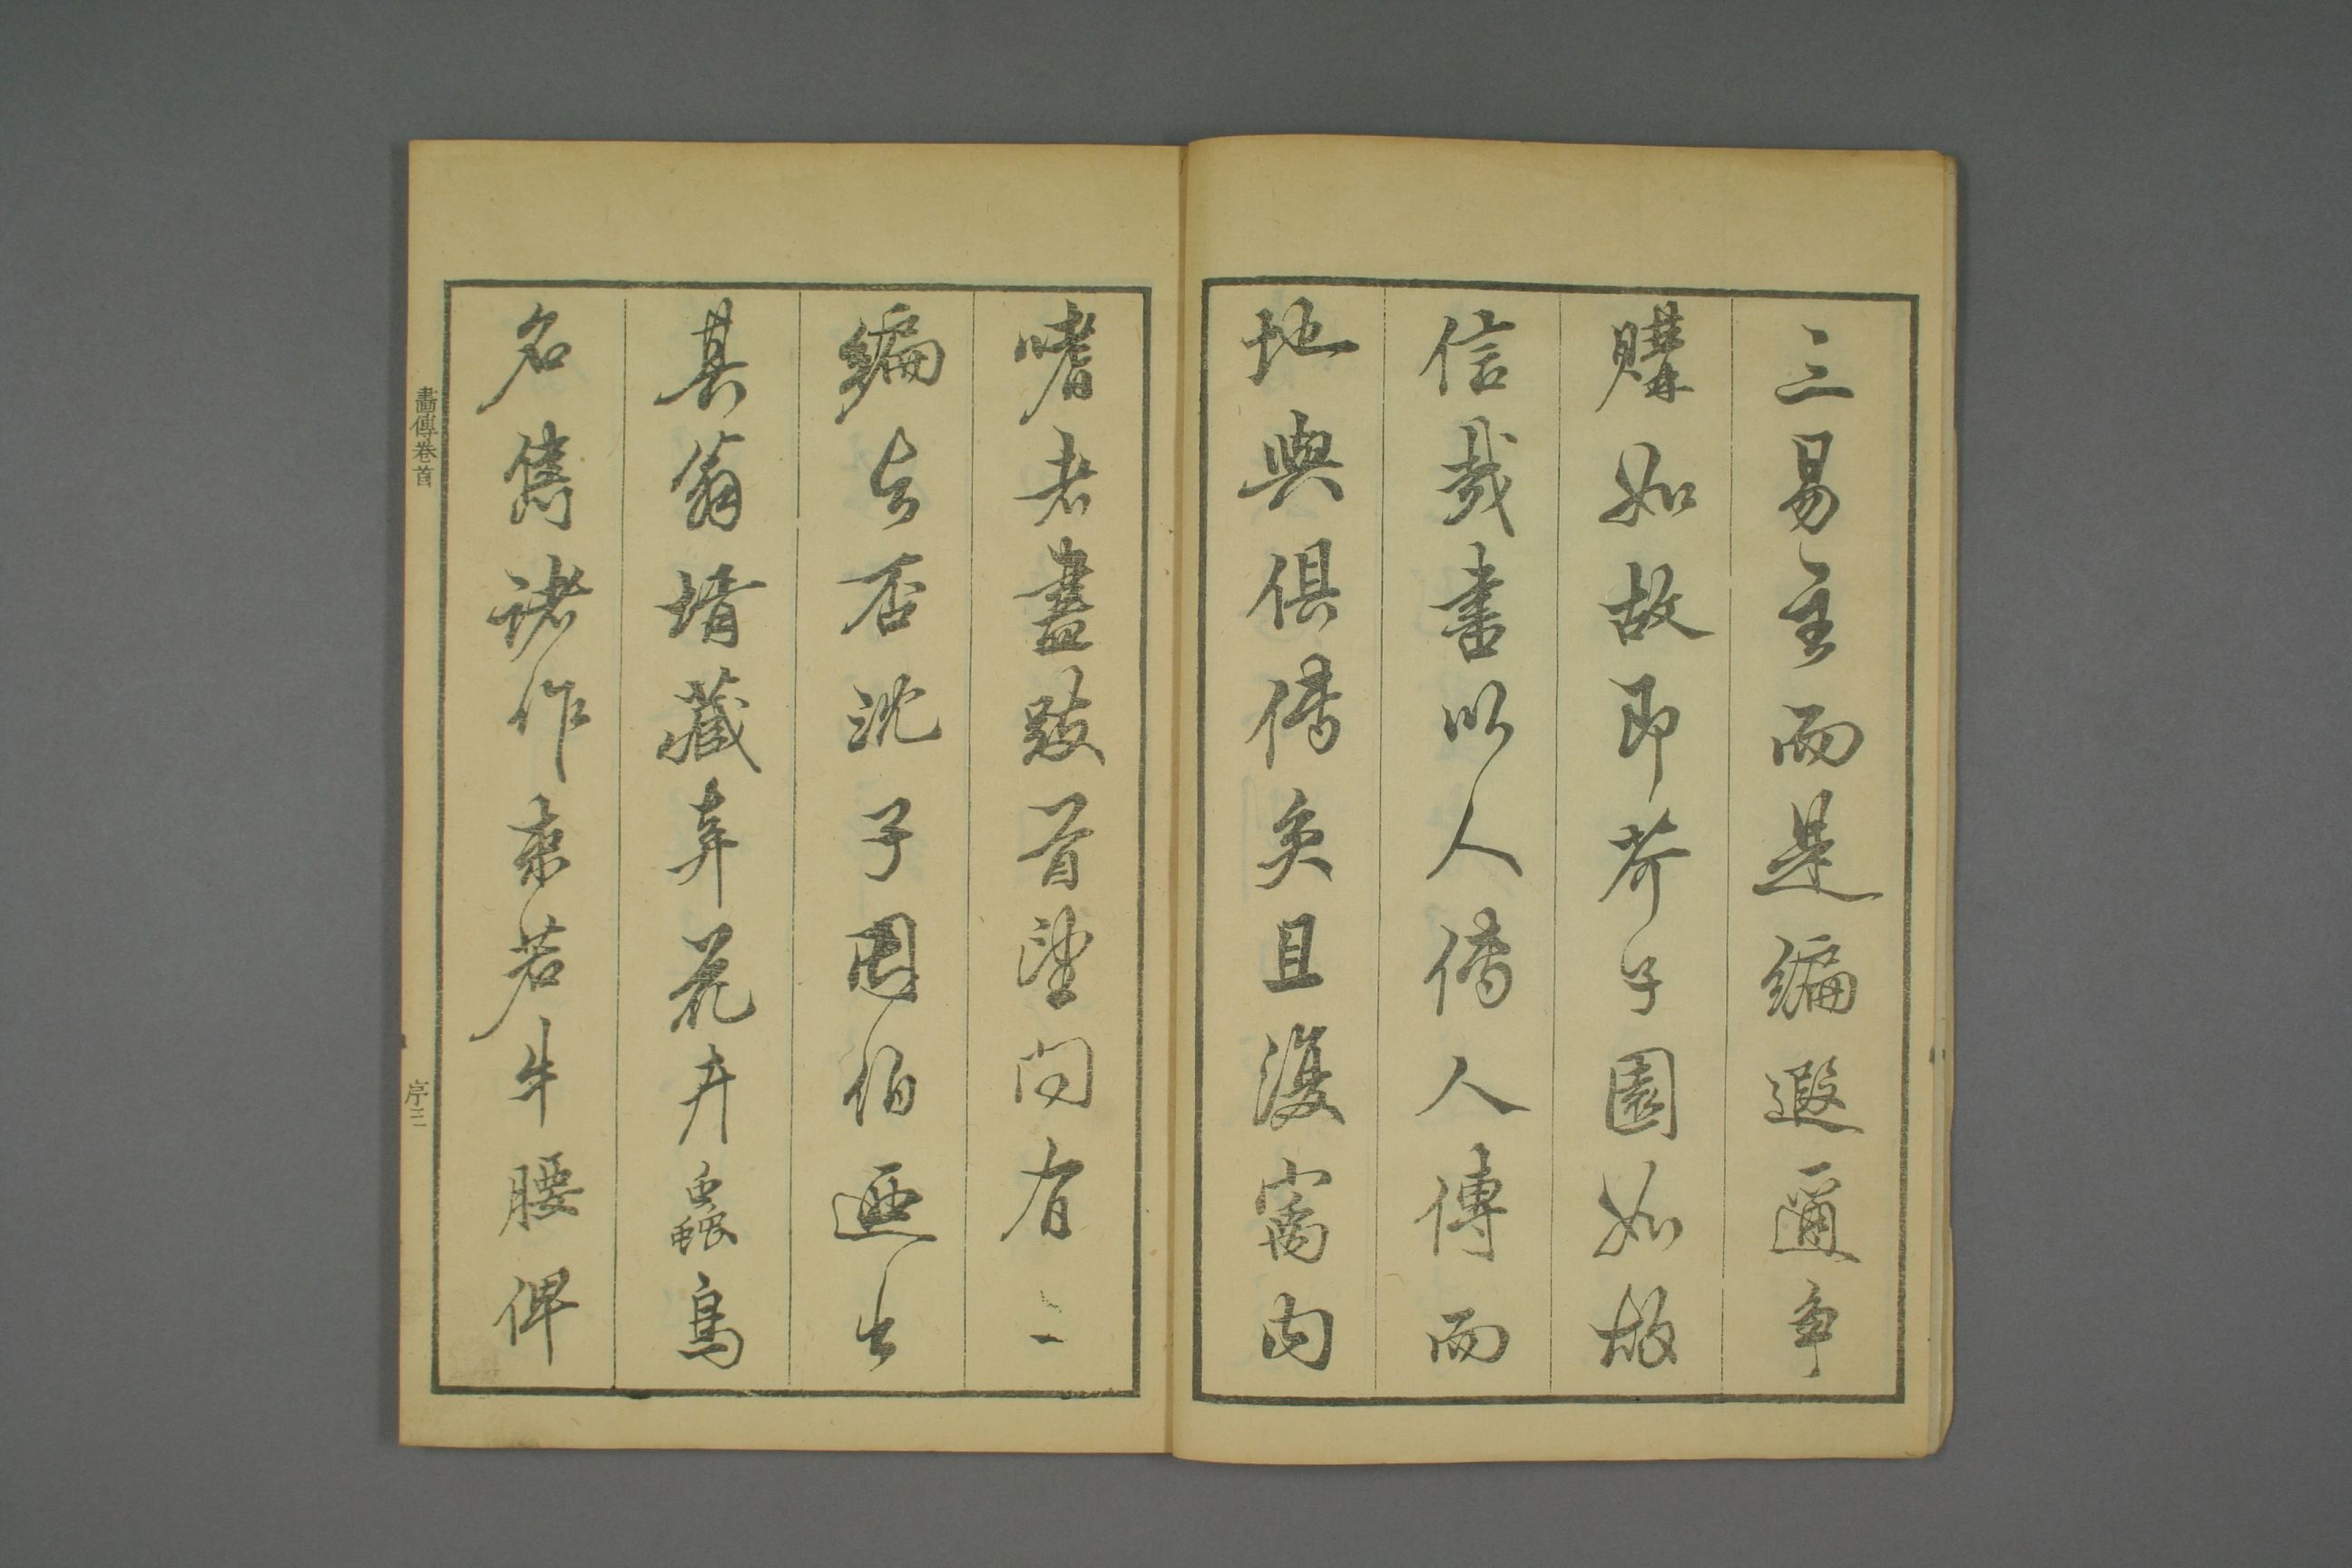 三易主而是編遐邇爭
購如故即芥子園如故
信哉書以人傳人傳而
地與俱傳矣且復寓內
嗜者盡跂首望問有二
編與否沈子因伯遂出
其翁壻藏弆花卉蟲鳥
名雋諸作束若牛腰俾
畫傳卷首
序三